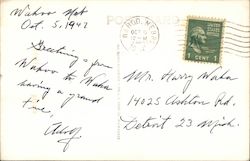 Wahoo Neb
Oct. 5, 1947
Greetings from
Wahoo to Waha
having a grand
time,
Adolf
POST CARD
WAHOO, NEBR.
OCT
1 CENT 1
Mr. Harry Waha
14025 Ashton Rd.
Detroit 23 Mich.